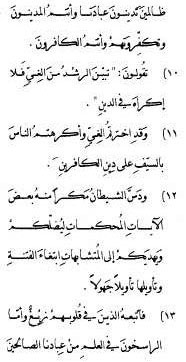 ظالمين تدينون عبادنا وأنتم المدينون
وتكفرونهم وأنتم الكافرون.
(١٠) تقولون: "تبين الرشد من الغي فلا
إكراه في الدين".
(١١) وقد اخترتم الغي وأكرهتم الناس
بالسيف على دين الكافرين.
(١٢) ودس الشيطان مكرا منه بعض
الآيات المحكمات ليضلكم
ويهديكم إلى المتشابهات ابتغاء الفتنة
وتأويلها تأويلا جهولا.
(١٣) فاتبعه الذين في قلوبهم زيغ وأما
الراسخون في العلم من عبادنا الصالحين